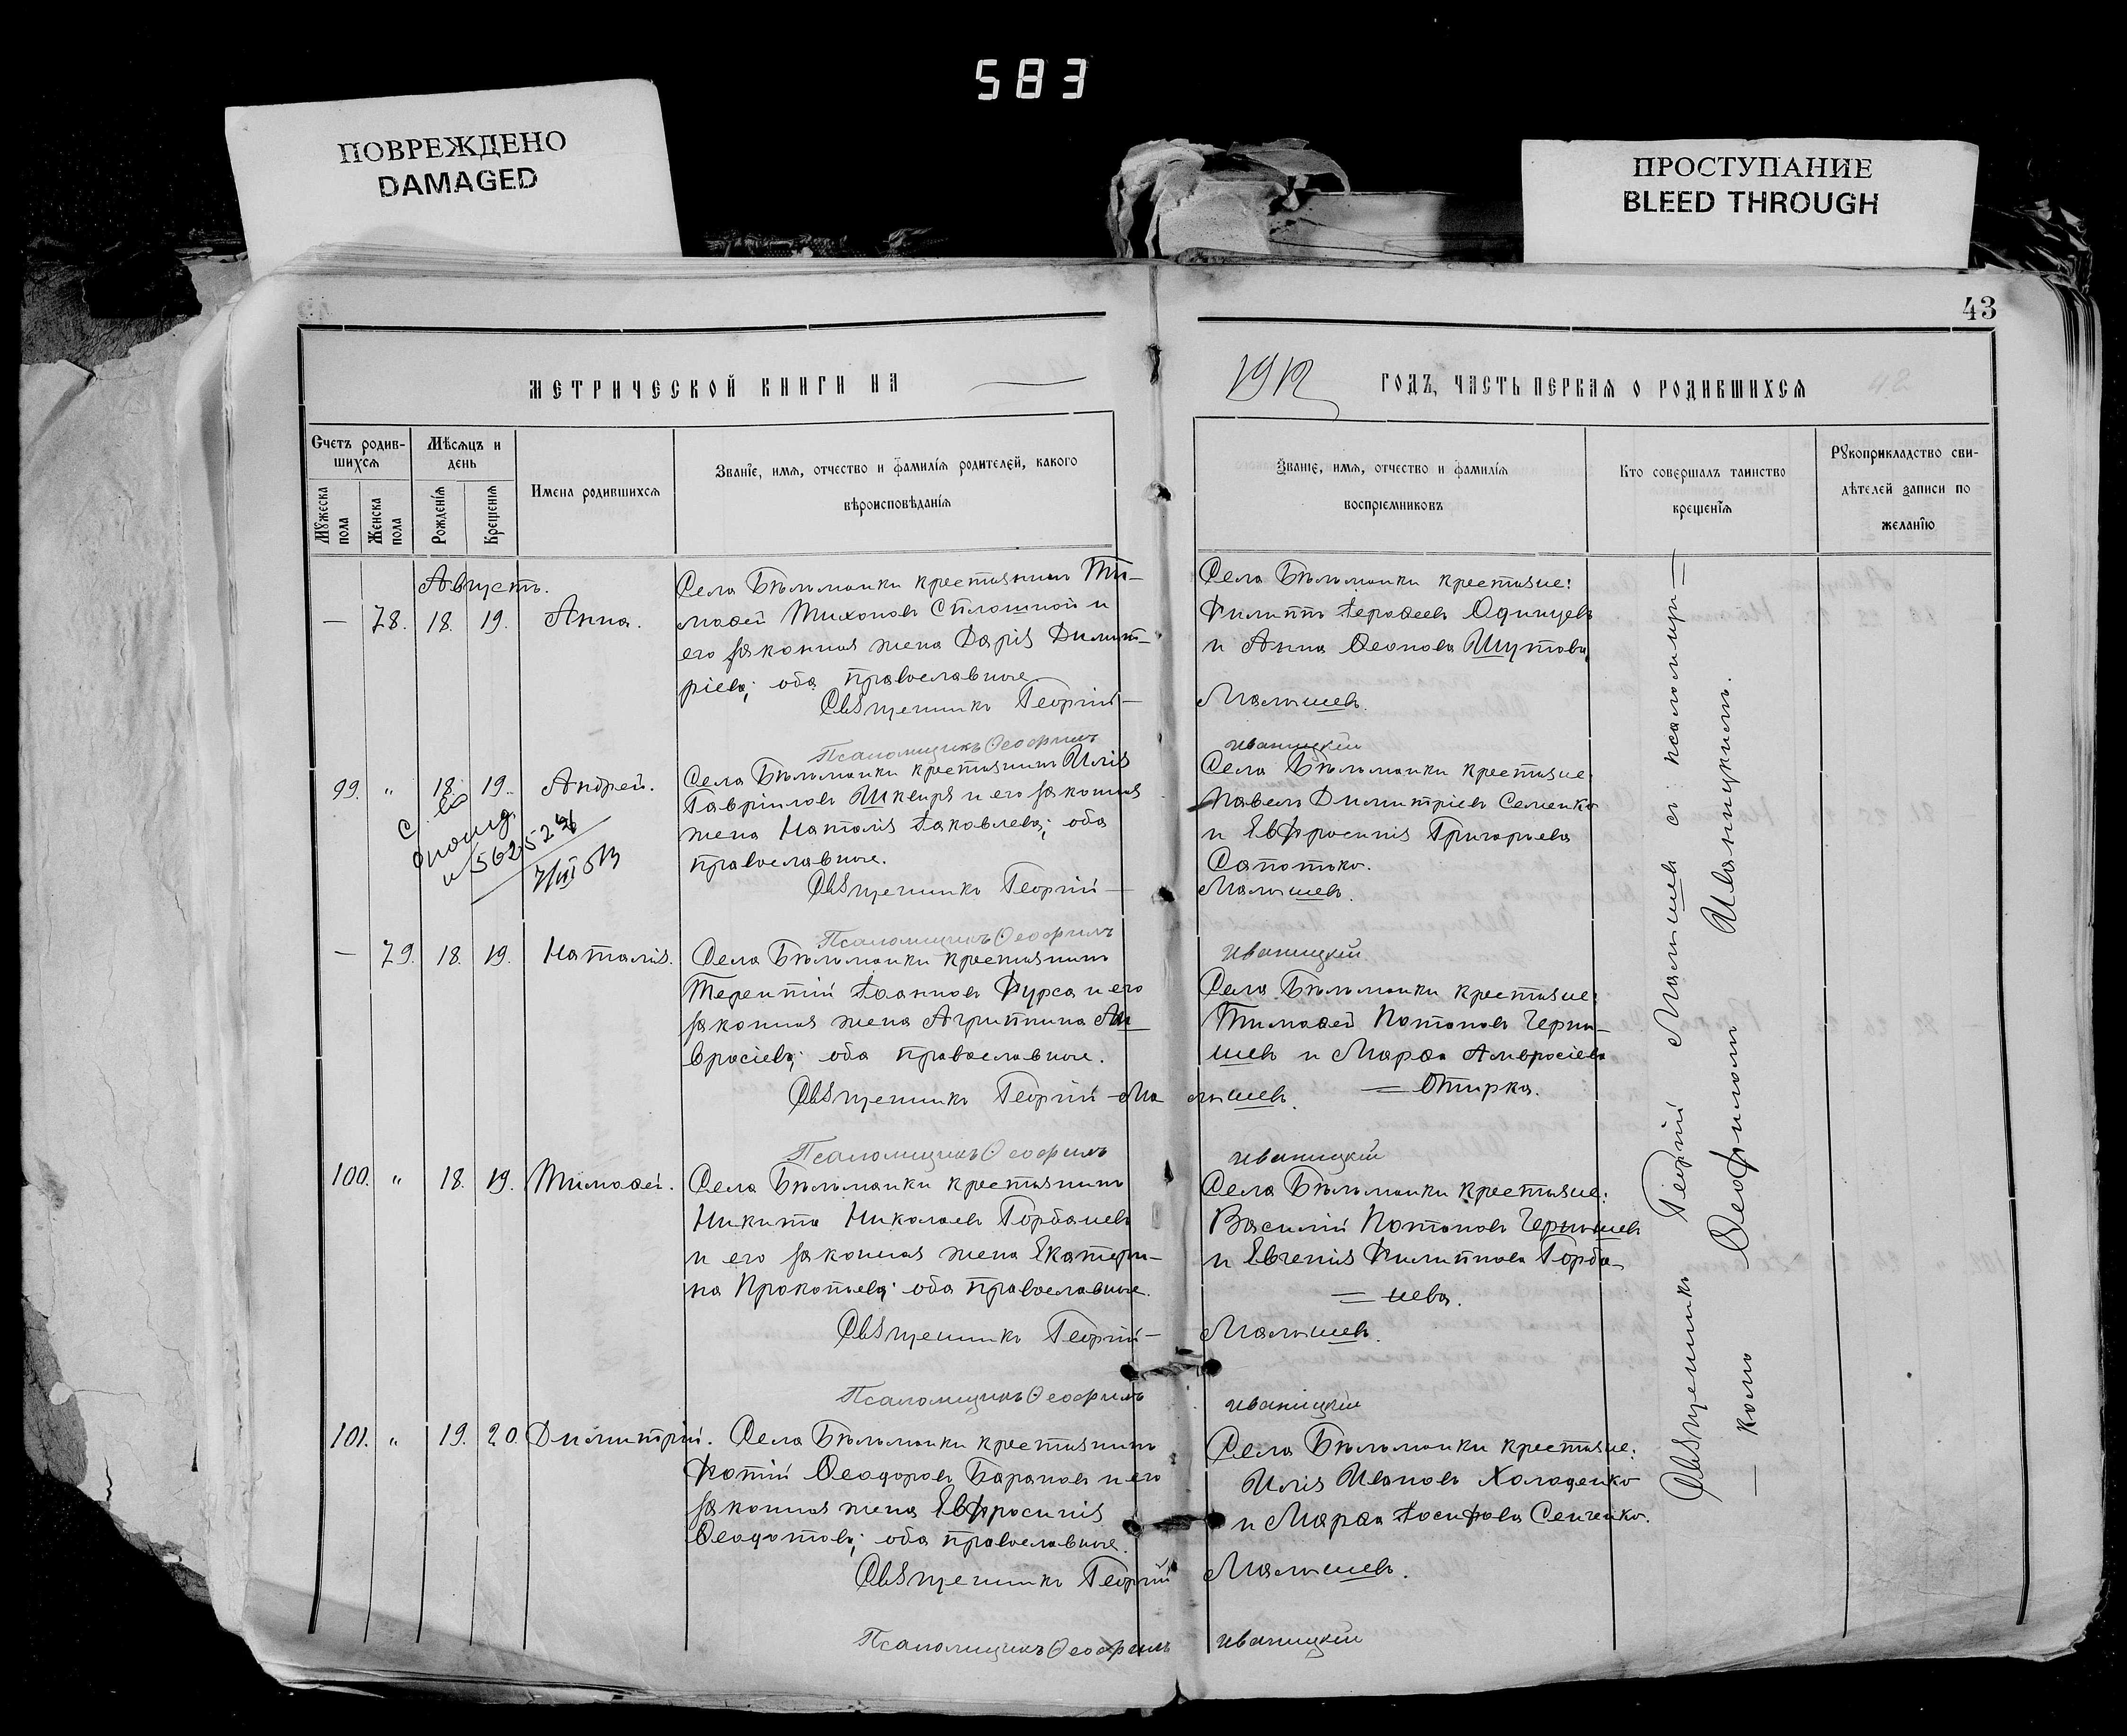 583
ПОВРЕЖДЕНО
DAMAGED
ПРОСТУПАНИЕ
BLEED THROUGH
43
МЕТРИЧЕСКОЙ КНИГИ НА
1912 ГОДЪ, ЧАСТЬ ПЕРВАЯ О РОДИВШИХСЯ
Счетъ родив-
шихся
Мужеска пола
Женска пола
Мѣсяцъ и
день
Рожденія
Крещенія
Имена родившихся
Званіе, имя, отчество и фамилія родителей, какого
вѣроисповѣданія
Званіе, имя, отчество и фамилія
воспріемниковъ
Кто совершалъ таинство
крещенія
Рукоприкладство сви-
дѣтелей записи по
желанію
Августъ.
— 78. 18. 19. Анна.
Села Бѣльманки крестьянинъ Ти-
моѳей Тихоновъ Сплошной и
его законная жена Дарія Димит-
ріева; оба православные
Священникъ Георгій —
Псаломщикъ Ѳеофилъ
Села Бѣльманки крестьяне:
Филиппъ Іероѳеевъ Одинцевъ
и Анна Леонова Шутова
Малышевъ.
Иваницкій
99. " 18. 19. Андрей.
Села Бѣльманки крестьянинъ Илія
Гавріиловъ Шквиря и его законная
жена Наталія Іаковлева; оба
православные.
Священникъ Георгій —
Псаломщикъ Ѳеофилъ
Села Бѣльманки крестьяне:
Павелъ Димитріевъ Семенко
и Евфросинія Григорьева
Сапотько.
Малышевъ.
Иваницкій
— 79. 18. 19. Наталія.
Села Бѣльманки крестьянинъ
Терентій Іоанновъ Фурса и его
законная жена Агриппина Ам
вросіева; оба православные.
Священникъ Георгій Ма
Псаломщикъ Ѳеофилъ
Села Бѣльманки крестьяне:
Тимоѳей Потаповъ Черны-
шевъ и Марѳа Амвросіева
= Отирка.
лышевъ.
Иваницкій
100. " 18. 19. Тимоѳей.
Села Бѣльманки крестьянинъ
Никита Николаевъ Горбачевъ
и его законная жена Екатери-
на Прокопьева; оба православные.
Священникъ Георгій —
Псаломщикъ Ѳеофилъ
Села Бѣльманки крестьяне:
Василій Потаповъ Чернышевъ
и Евгенія Филиппова Горба-
= чева.
Малышевъ.
Иваницкій
101. " 19. 20. Димитрій.
Села Бѣльманки крестьянинъ
Фотій Ѳеодоровъ Барановъ и его
законная жена Евфросинія
Ѳеодотова; оба православные.
Священникъ Георгій
Псаломщикъ Ѳеофилъ
Села Бѣльманки крестьяне:
Илія Ивановъ Холоденко
и Марѳа Іосифова Сенченко.
Малышевъ.
Иваницкій
Священникъ Георгій Малышевъ съ псаломщи =
— комъ Ѳеофиломъ Иваницкимъ.